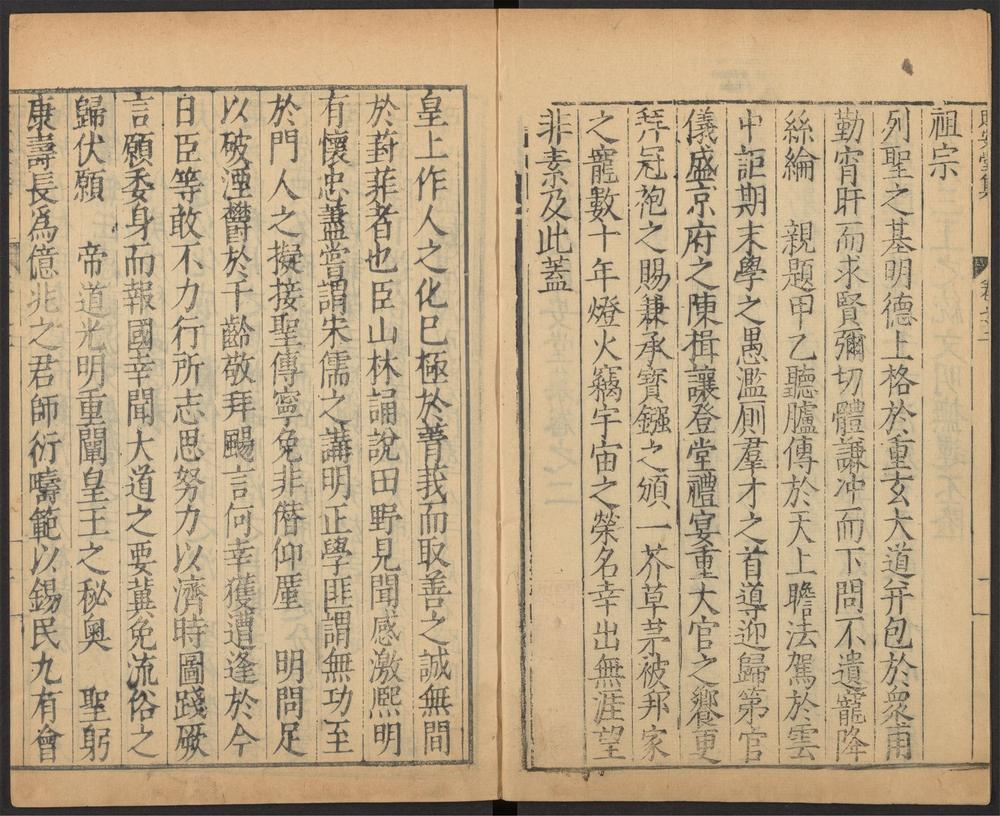 祖宗
列聖之基明德上格於重玄大道并包於衆甫
勤宵旰而求賢彌切體謙冲而下問不遺寵降
絲綸　親題甲乙聽臚傳於天上瞻法駕於雲
中詎期末學之愚濫側羣才之首導迎歸第官
儀盛京府之陳揖讓登堂禮宴重大官之饗更
拜冠袍之賜兼承寶鏹之頒一芥草茅被邦家
之寵數十年燈火竊宇宙之榮名幸出無涯望
非素及此蓋
皇上作人之化已極於菁莪而取善之誠無間
於葑菲者也臣山林誦說田野見聞感激熙明
有懷忠藎嘗謂朱儒之講明正學匪謂無功至
於門人之擬接聖傳寧免非僭仰厪　明問足
以破湮鬱於千齡敬拜颺言何幸獲遭逢於今
日臣等敢不力行所志思努力以濟時圖踐厥
言願委身而報國幸聞大道之要冀免流俗之
歸伏願　帝道光明重闡皇王之秘奥　聖躬
康壽長爲億兆之君師衍疇範以錫民九有會